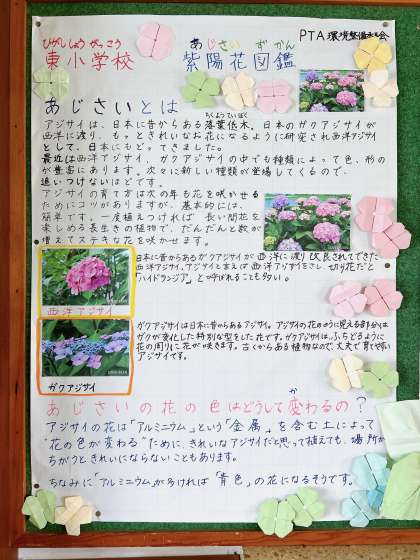 ひがししょうがっこう
東小学校
あじさい ずかん
紫陽花図鑑
PTA環境整備委員会
あじさいとは
らくようていぼく
アジサイは、日本に昔からある落葉低木。日本のガクアジサイが
西洋に渡り、もっときれいなお花になるように研究され西洋アジサイ
として、日本にもどってきました。
最近は西洋アジサイ、ガクアジサイの中でも種類によって色、形の
が豊富にあります。次々に新しい種類が登場してくるので、
追いつけないほどです。
アジサイの育て方は次の年も花を咲かせる
ためにコツがありますが、基本的には、
簡単です。一度植えつければ長い間花を
楽しめる長生きの植物で、だんだんと数が
増えてステキな花を咲かせます。
西洋アジサイ
日本に昔からあるガクアジサイが西洋に渡り改良されてできた
西洋アジサイ。アジサイと言えば西洋アジサイをさし、切り花だと
「ハイドランジア」とよばれることも多い。
ガクアジサイ
ガクアジサイは日本に昔からあるアジサイ。アジサイの花のように見える部分は
ガクが変化した特別な型をした花です。ガクアジサイは、ふちどるように
花の周りに花が咲きます。古くからある植物なので、丈夫で育てやすい
アジサイです。
か
あじさいの花の色はどうして変わるの?
アジサイの花は「アルミニウム」という「金属」を含む土によって
"花の色が変わる"ために、きれいなアジサイだと思って植えても、場所が
ちがうときれいにならないこともあります。
ちなみに「アルミニウム」が多ければ「青色」の花になるそうです。